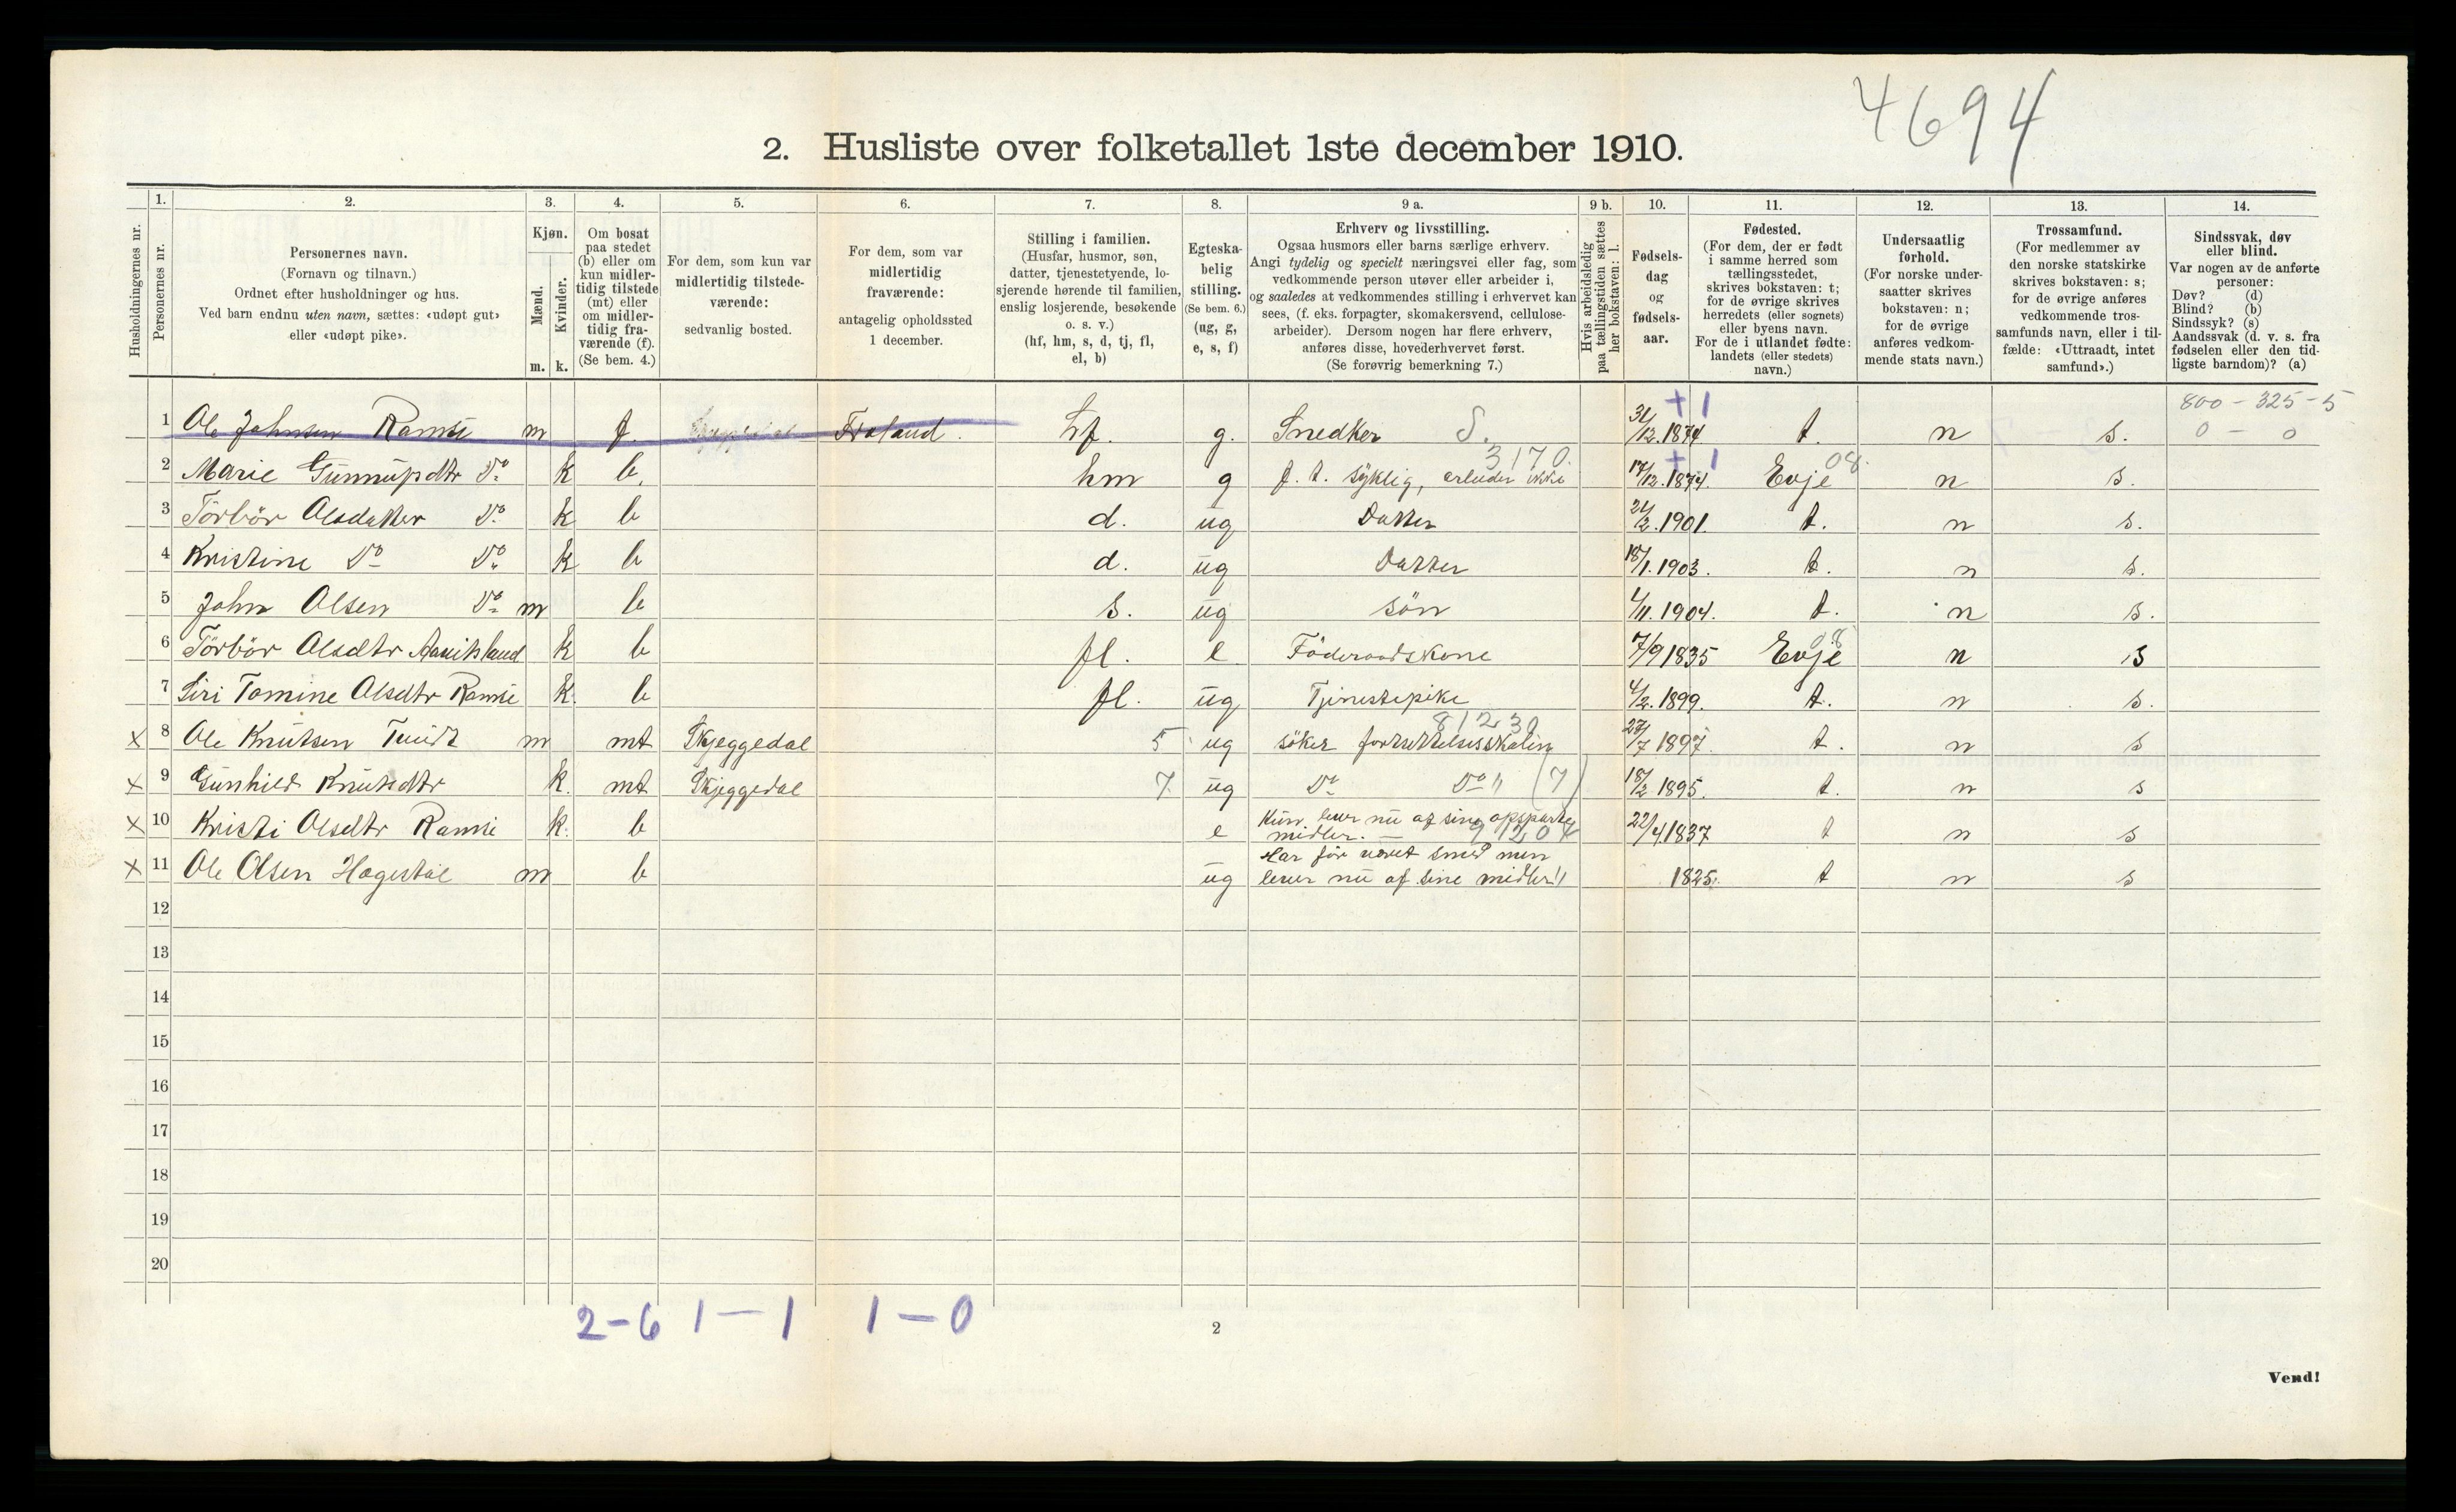 4694
2. Husliste over folketallet 1ste december 1910.
Husholdningernes nr.
1. Personernes nr.
2. Personernes navn.
(Fornavn og tilnavn.)
Ordnet efter husholdninger og hus.
Ved barn endnu uten navn, sættes: «udøpt gut»
eller «udøpt pike».
3. Kjøn.
Mænd. Kvinder.
m. k.
4. Om bosat
paa stedet
(b) eller om
kun midler-
tidig tilstede
(mt) eller
om midler-
tidig fra-
værende (f).
(Se bem. 4.)
5. For dem, som kun var
midlertidig tilstede-
værende:
sedvanlig bosted.
6. For dem, som var
midlertidig
fraværende:
antagelig opholdssted
1 december.
7. Stilling i familien.
(Husfar, husmor, søn,
datter, tjenestetyende, lo-
sjerende hørende til familien,
enslig losjerende, besøkende
o. s. v.)
(hf, hm, s, d, tj, fl,
el, b)
8. Egteska-
belig
stilling.
(Se bem. 6.)
(ug, g,
e, s, f)
9 a. Erhverv og livsstilling.
Ogsaa husmors eller barns særlige erhverv.
Angi tydelig og specielt næringsvei eller fag, som
vedkommende person utøver eller arbeider i,
og saaledes at vedkommendes stilling i erhvervet kan
sees, (f. eks. forpagter, skomakersvend, cellulose-
arbeider). Dersom nogen har flere erhverv,
anføres disse, hovederhvervet først.
(Se forøvrig bemerkning 7.)
9 b. Hvis arbeidsledig
paa tællingstiden sættes
her bokstaven: l.
10. Fødsels-
dag
og
fødsels-
aar.
11. Fødested.
(For dem, der er født
i samme herred som
tællingsstedet,
skrives bokstaven: t;
for de øvrige skrives
herredets (eller sognets)
eller byens navn.
For de i utlandet fødte:
landets (eller stedets)
navn.)
12. Undersaatlig
forhold.
(For norske under-
saatter skrives
bokstaven: n;
for de øvrige
anføres vedkom-
mende stats navn.)
13. Trossamfund.
(For medlemmer av
den norske statskirke
skrives bokstaven: s;
for de øvrige anføres
vedkommende tros-
samfunds navn, eller i til-
fælde: «Uttraadt, intet
samfund».)
14. Sindssvak, døv
eller blind.
Var nogen av de anførte
personer:
Døv? (d)
Blind? (b)
Sindssyk? (s)
Aandssvak (d. v. s. fra
fødselen eller den tid-
ligste barndom)? (a)
+ 1 800 - 325 - 5
1 Ole Johnsen Ramse m f. Froland. hf. g. Snedker S. 31/12.1874 t. n s. 0 - 0
3170. + 1 08.
2 Marie Gunnupdtr Do k b. hm g f. t. syklig, ikke 17/12.1874. Evje n s.
3 Törbör Olsdatter Do k b d. ug Datter 2.1901. t. n s.
4 Kristine Do Do k b d. ug Datter 18/1.1903. t. n s.
5 John Olsen Do m b s. ug sön 4/11.1904. t. n s.
6 Törbör Olsdtr k b fl. e Föderaadskone 7/9 1835 Evje 08 n s
7 Siri Tomine Olsdtr Ramse k. b fl. ug Tjenestepike 4/2.1899. t. n s.
81230
x 8 Ole Knutsen m mt Skjeggedal 5 ug söker fortsettelsesskolen 27/7 1897. t. n s
x 9 Gunhild Knutsdtr k. mt Skjeggedal 7. ug Do Do " (7) 18/2 1895. t. n s
x 10 Kristi Olsdtr Ramse k. b e Kun lever nu af sine opsparte
midler. — 91204 22/4 1837 t n s
x 11 Ole Olsen Hagestöl m b ug Har för været smed men
lever nu af sine midler " 1825. t n s
12
13
14
15
16
17
18
19
20
2-6 1-1 1-0
2
Vend!